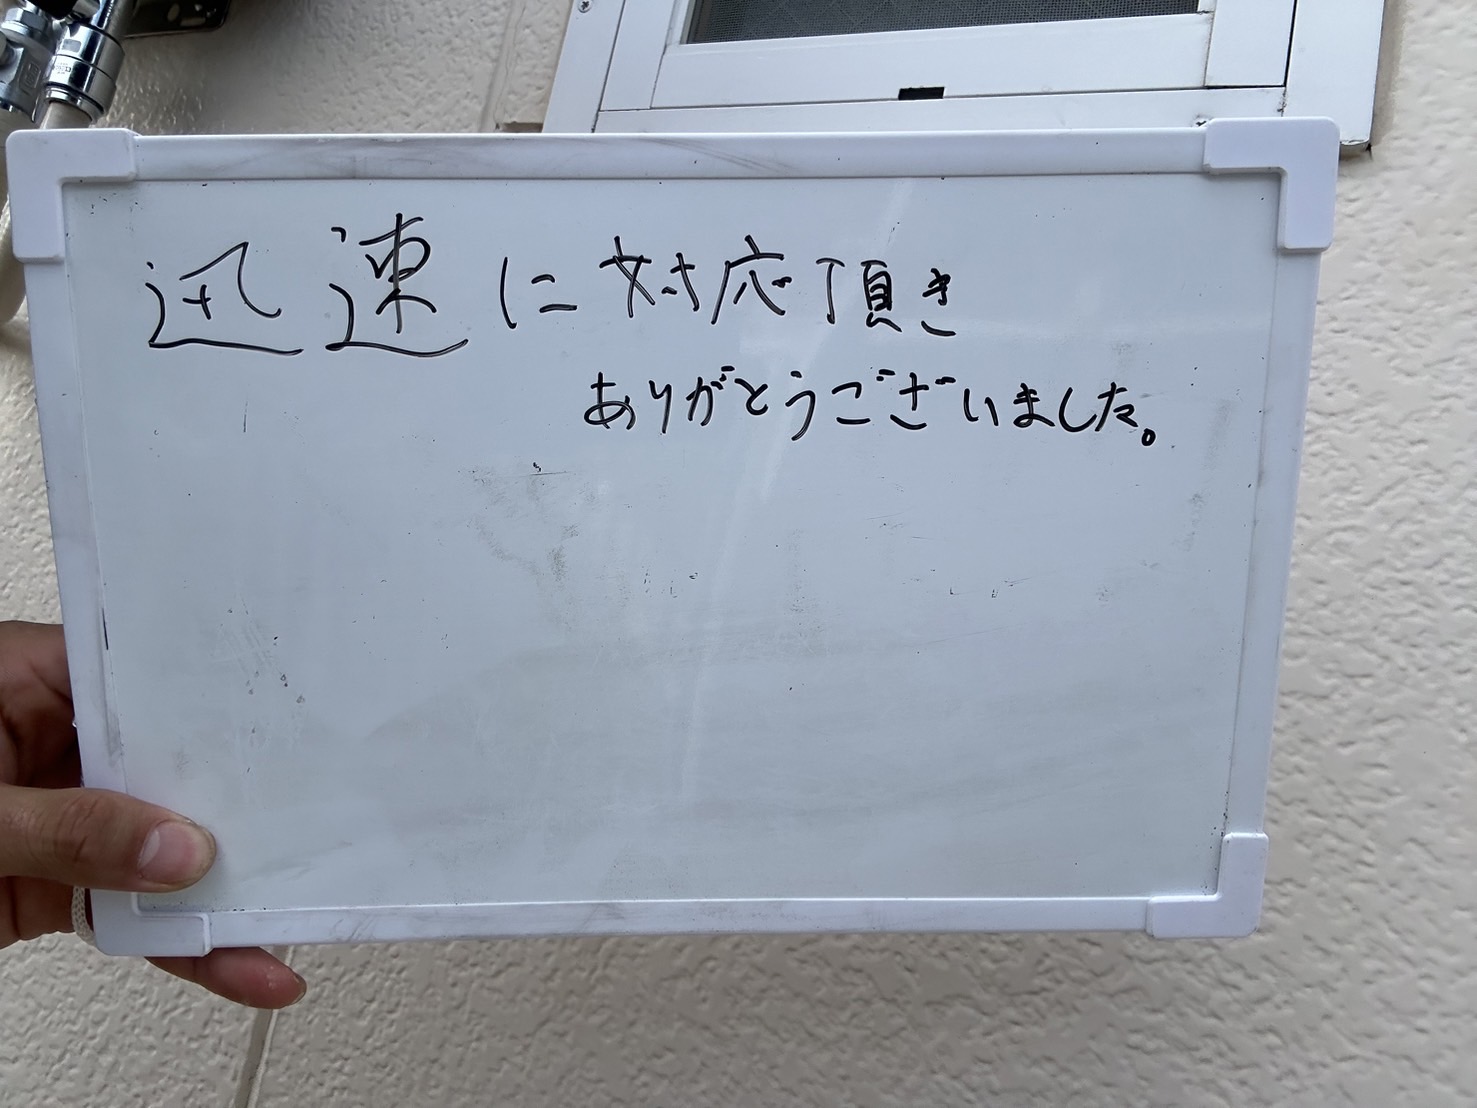 迅速に対応頂き
ありがとうございました。